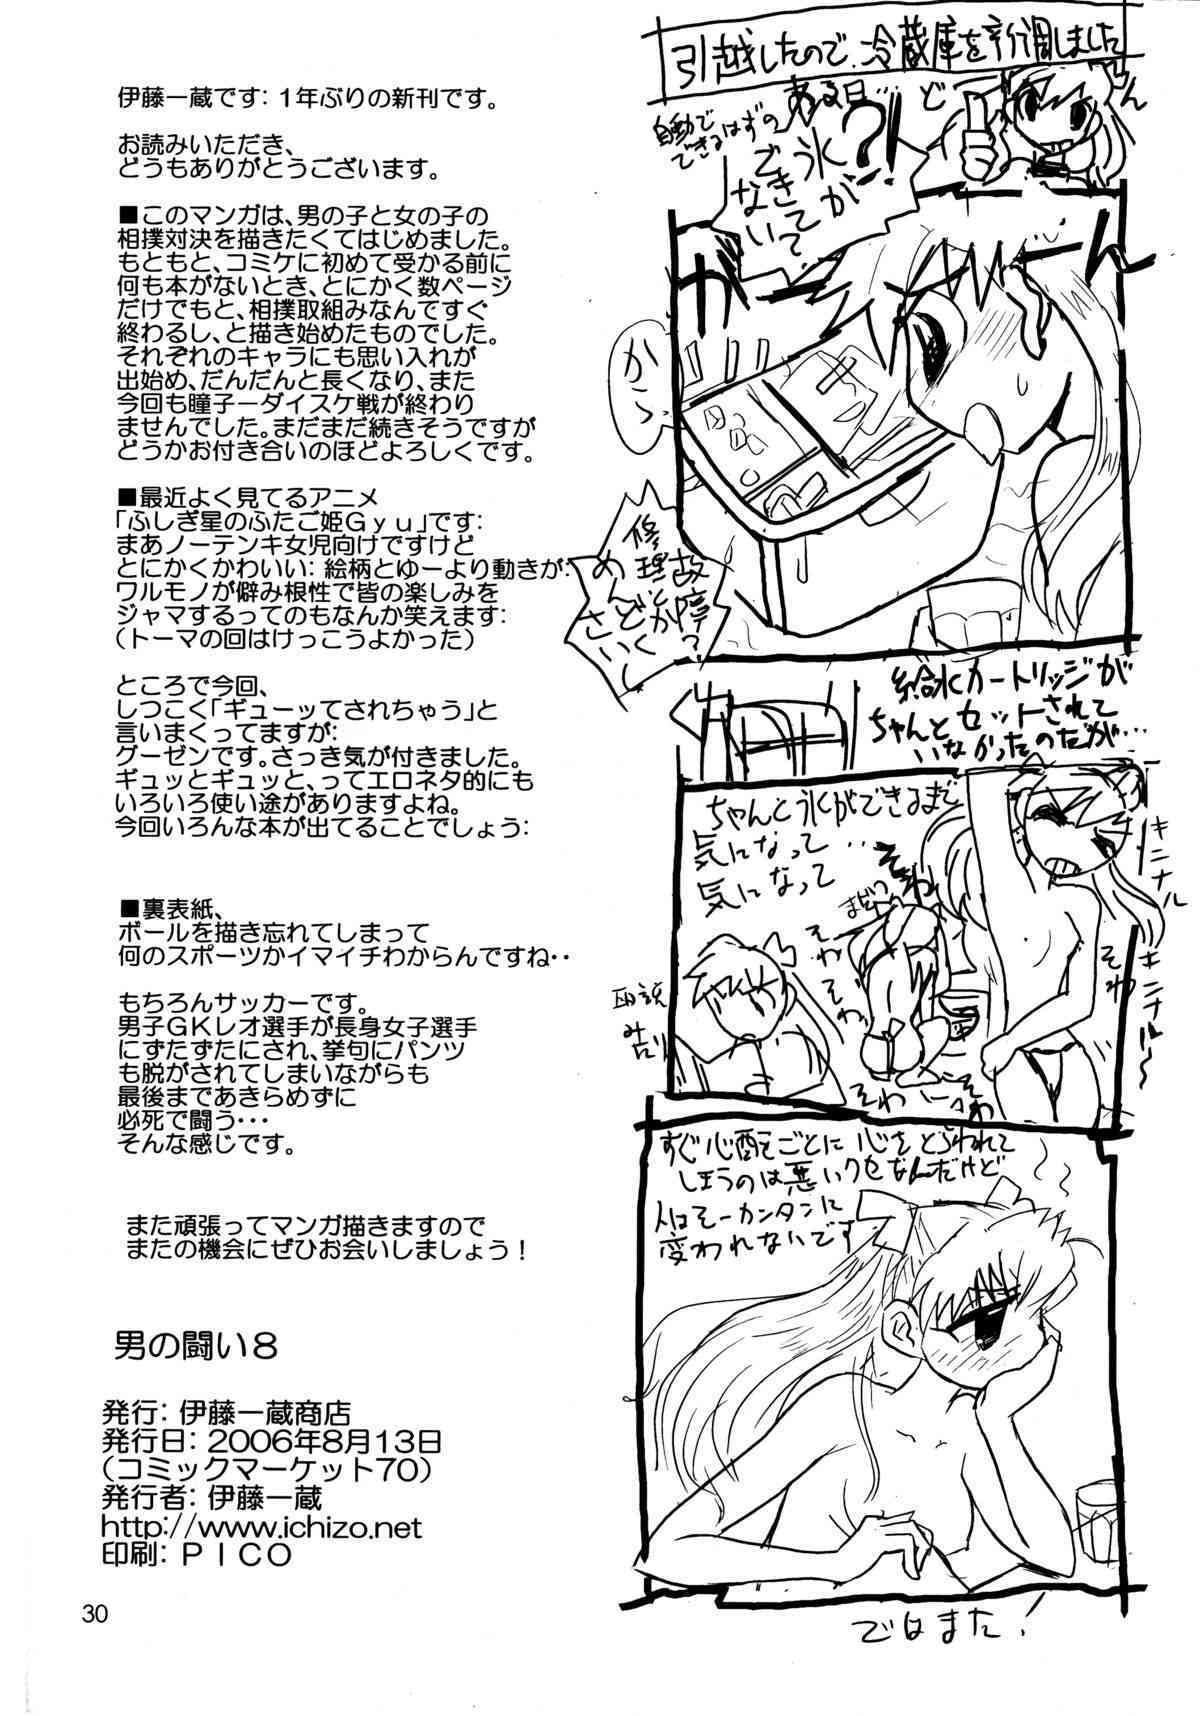 伊藤一蔵です：１年ぶりの新刊です。
お読みいただき、
どうもありがとうございます。
■このマンガは、男の子と女の子の
相撲対決を描きたくてはじめました。
もともと、コミケに初めて受かる前に
何も本がないとき、とにかく数ページ
だけでもと、相撲取組みなんてすぐ
終わるし、と描き始めたものでした。
それぞれのキャラにも思い入れが
出始め、だんだんと長くなり、また
今回も瞳子ーダイスケ戦が終わり
ませんでした。まだまだ続きそうですが
どうかお付き合いのほどよろしくです。
■最近よく見てるアニメ
「ふしぎ星のふたご姫Ｇｙｕ」です：
まあノーテンキ女児向けですけど
とにかくかわいい：絵柄とゆーより動きが：
ワルモノが僻み根性で皆の楽しみを
ジャマするってのもなんか笑えます：
（トーマの回はけっこうよかった）
ところで今回、
しつこく「ギューッてされちゃう」と
言いまくってますが：
グーゼンです。さっき気が付きました。
ギュッとギュッと、ってエロネタ的にも
いろいろ使い途がありますよね。
今回いろんな本が出てることでしょう：
■裏表紙、
ボールを描き忘れてしまって
何のスポーツかイマイチわからんですね・・
もちろんサッカーです。
男子ＧＫレオ選手が長身女子選手
にずたずたにされ、挙句にパンツ
も脱がされてしまいながらも
最後まであきらめずに
必死で闘う・・・
そんな感じです。
また頑張ってマンガ描きますので
またの機会にぜひお会いしましょう！
男の闘い８
発行：伊藤一蔵商店
発行日：２００６年８月１３日
（コミックマーケット７０）
発行者：伊藤一蔵
http://www.ichizo.net
印刷：ＰＩＣＯ
30
引越したので、冷蔵庫を新調しました
ど
ん
ある日…
自動で
できるはずの
氷が
できて
いて
ない
?!
が
ー
ん
から
故障？
修理とか
めんどくさいし
給水カートリッジが
ちゃんとセットされて
いなかったのだが…
ちゃんと氷ができるまで
気になって…
気になって
まだかな
そわ
そわ
そわ
そわ
キニナル
キニナル〜
そわ
そわ
そわ
すぐ心配ごとに心をとらわれて
しまうのは悪いクセなんだけど
人はそーカンタンに
変われないです
ではまた！